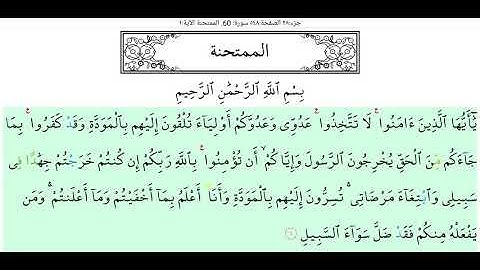 جزء:٢٨ الصفحة ٥٤٨ سورة: 60. الممتحنة الآية:١
الممتحنة
بِسْمِ ٱللَّهِ ٱلرَّحْمَٰنِ ٱلرَّحِيمِ
يَٰٓأَيُّهَا ٱلَّذِينَ ءَامَنُوا۟ لَا تَتَّخِذُوا۟ عَدُوِّى وَعَدُوَّكُمْ أَوْلِيَآءَ تُلْقُونَ إِلَيْهِم بِٱلْمَوَدَّةِ وَقَدْ كَفَرُوا۟ بِمَا
جَآءَكُم مِّنَ ٱلْحَقِّ يُخْرِجُونَ ٱلرَّسُولَ وَإِيَّاكُمْ ۙ أَن تُؤْمِنُوا۟ بِٱللَّهِ رَبِّكُمْ إِن كُنتُمْ خَرَجْتُمْ جِهَٰدًا فِى
سَبِيلِى وَٱبْتِغَآءَ مَرْضَاتِى ۚ تُسِرُّونَ إِلَيْهِم بِٱلْمَوَدَّةِ وَأَنَا۠ أَعْلَمُ بِمَآ أَخْفَيْتُمْ وَمَآ أَعْلَنتُمْ ۚ وَمَن
يَفْعَلْهُ مِنكُمْ فَقَدْ ضَلَّ سَوَآءَ ٱلسَّبِيلِ ١